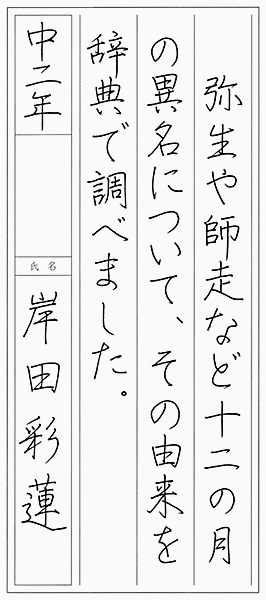 弥生や師走など十二の月
の異名について、その由来を
辞典で調べました。
中二年
氏名
岸田彩蓮